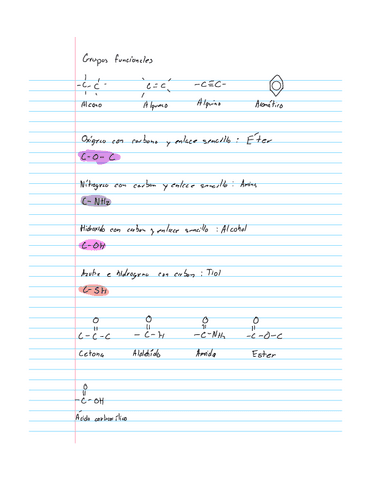 Grupos funcionales
-C-C- C=C -C≡C-
Alcano Alqueno Alquino Aromático
Oxígeno con carbono y enlace sencillo : Éter
C-O-C
Nitrógeno con carbon y enlace sencillo : Amina
C-NH2
Hidroxido con carbon y enlace sencillo : Alcohol
C-OH
Azufre e hidrogeno con carbon : Tiol
C-SH
O O O O
C-C-C -C-H -C-NH2 -C-O-C
Cetona Aldehído Amida Ester
O
-C-OH
Ácido carboxílico